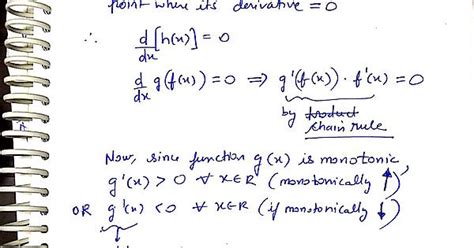 point where its derivative = 0
∴ d/dx [h(x)] = 0
d/dx g(f(x)) = 0 ⟹ g'(f(x)) · f'(x) = 0
by product
chain rule
Now, since function g(x) is monotonic,
g'(x) > 0 ∀ x∈R (monotonically ↑)
OR g'(x) < 0 ∀ x∈R (if monotonically ↓)